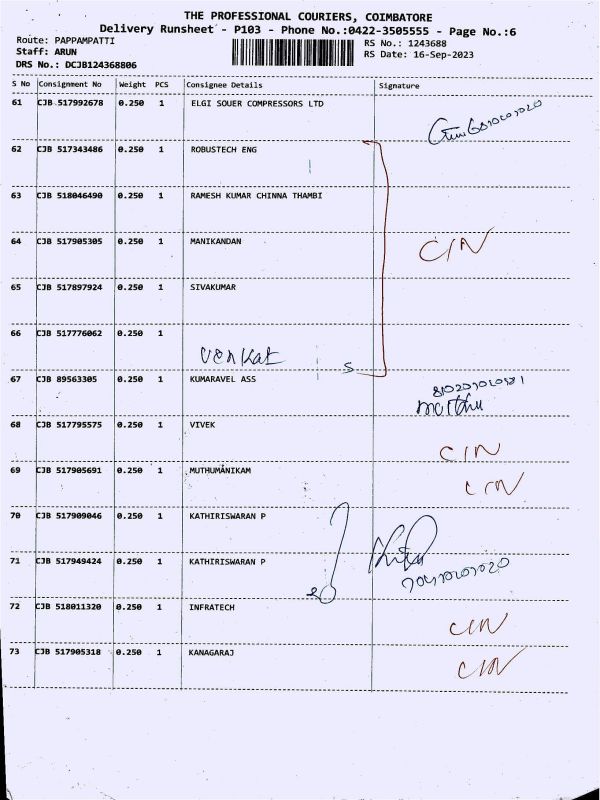 THE PROFESSIONAL COURIERS, COIMBATORE
Delivery Runsheet - P103 - Phone No.:0422-3505555 - Page No.:6
Route: PAPPAMPATTI
Staff: ARUN
DRS No.: DCJB124368806
RS No.: 1243688
RS Date: 16-Sep-2023
S No Consignment No Weight PCS Consignee Details Signature
61 CJB 517992678 0.250 1 ELGI SOUER COMPRESSORS LTD
62 CJB 517343486 0.250 1 ROBUSTECH ENG
63 CJB 518046490 0.250 1 RAMESH KUMAR CHINNA THAMBI
64 CJB 517905305 0.250 1 MANIKANDAN CIN
65 CJB 517897924 0.250 1 SIVAKUMAR
66 CJB 517776062 0.250 1
Venkat S
67 CJB 89563305 0.250 1 KUMARAVEL ASS
68 CJB 517795575 0.250 1 VIVEK CIN
69 CJB 517905691 0.250 1 MUTHUMANIKAM CIN
70 CJB 517909046 0.250 1 KATHIRISWARAN P
71 CJB 517949424 0.250 1 KATHIRISWARAN P
72 CJB 518011320 0.250 1 INFRATECH CIN
73 CJB 517905318 0.250 1 KANAGARAJ CIN